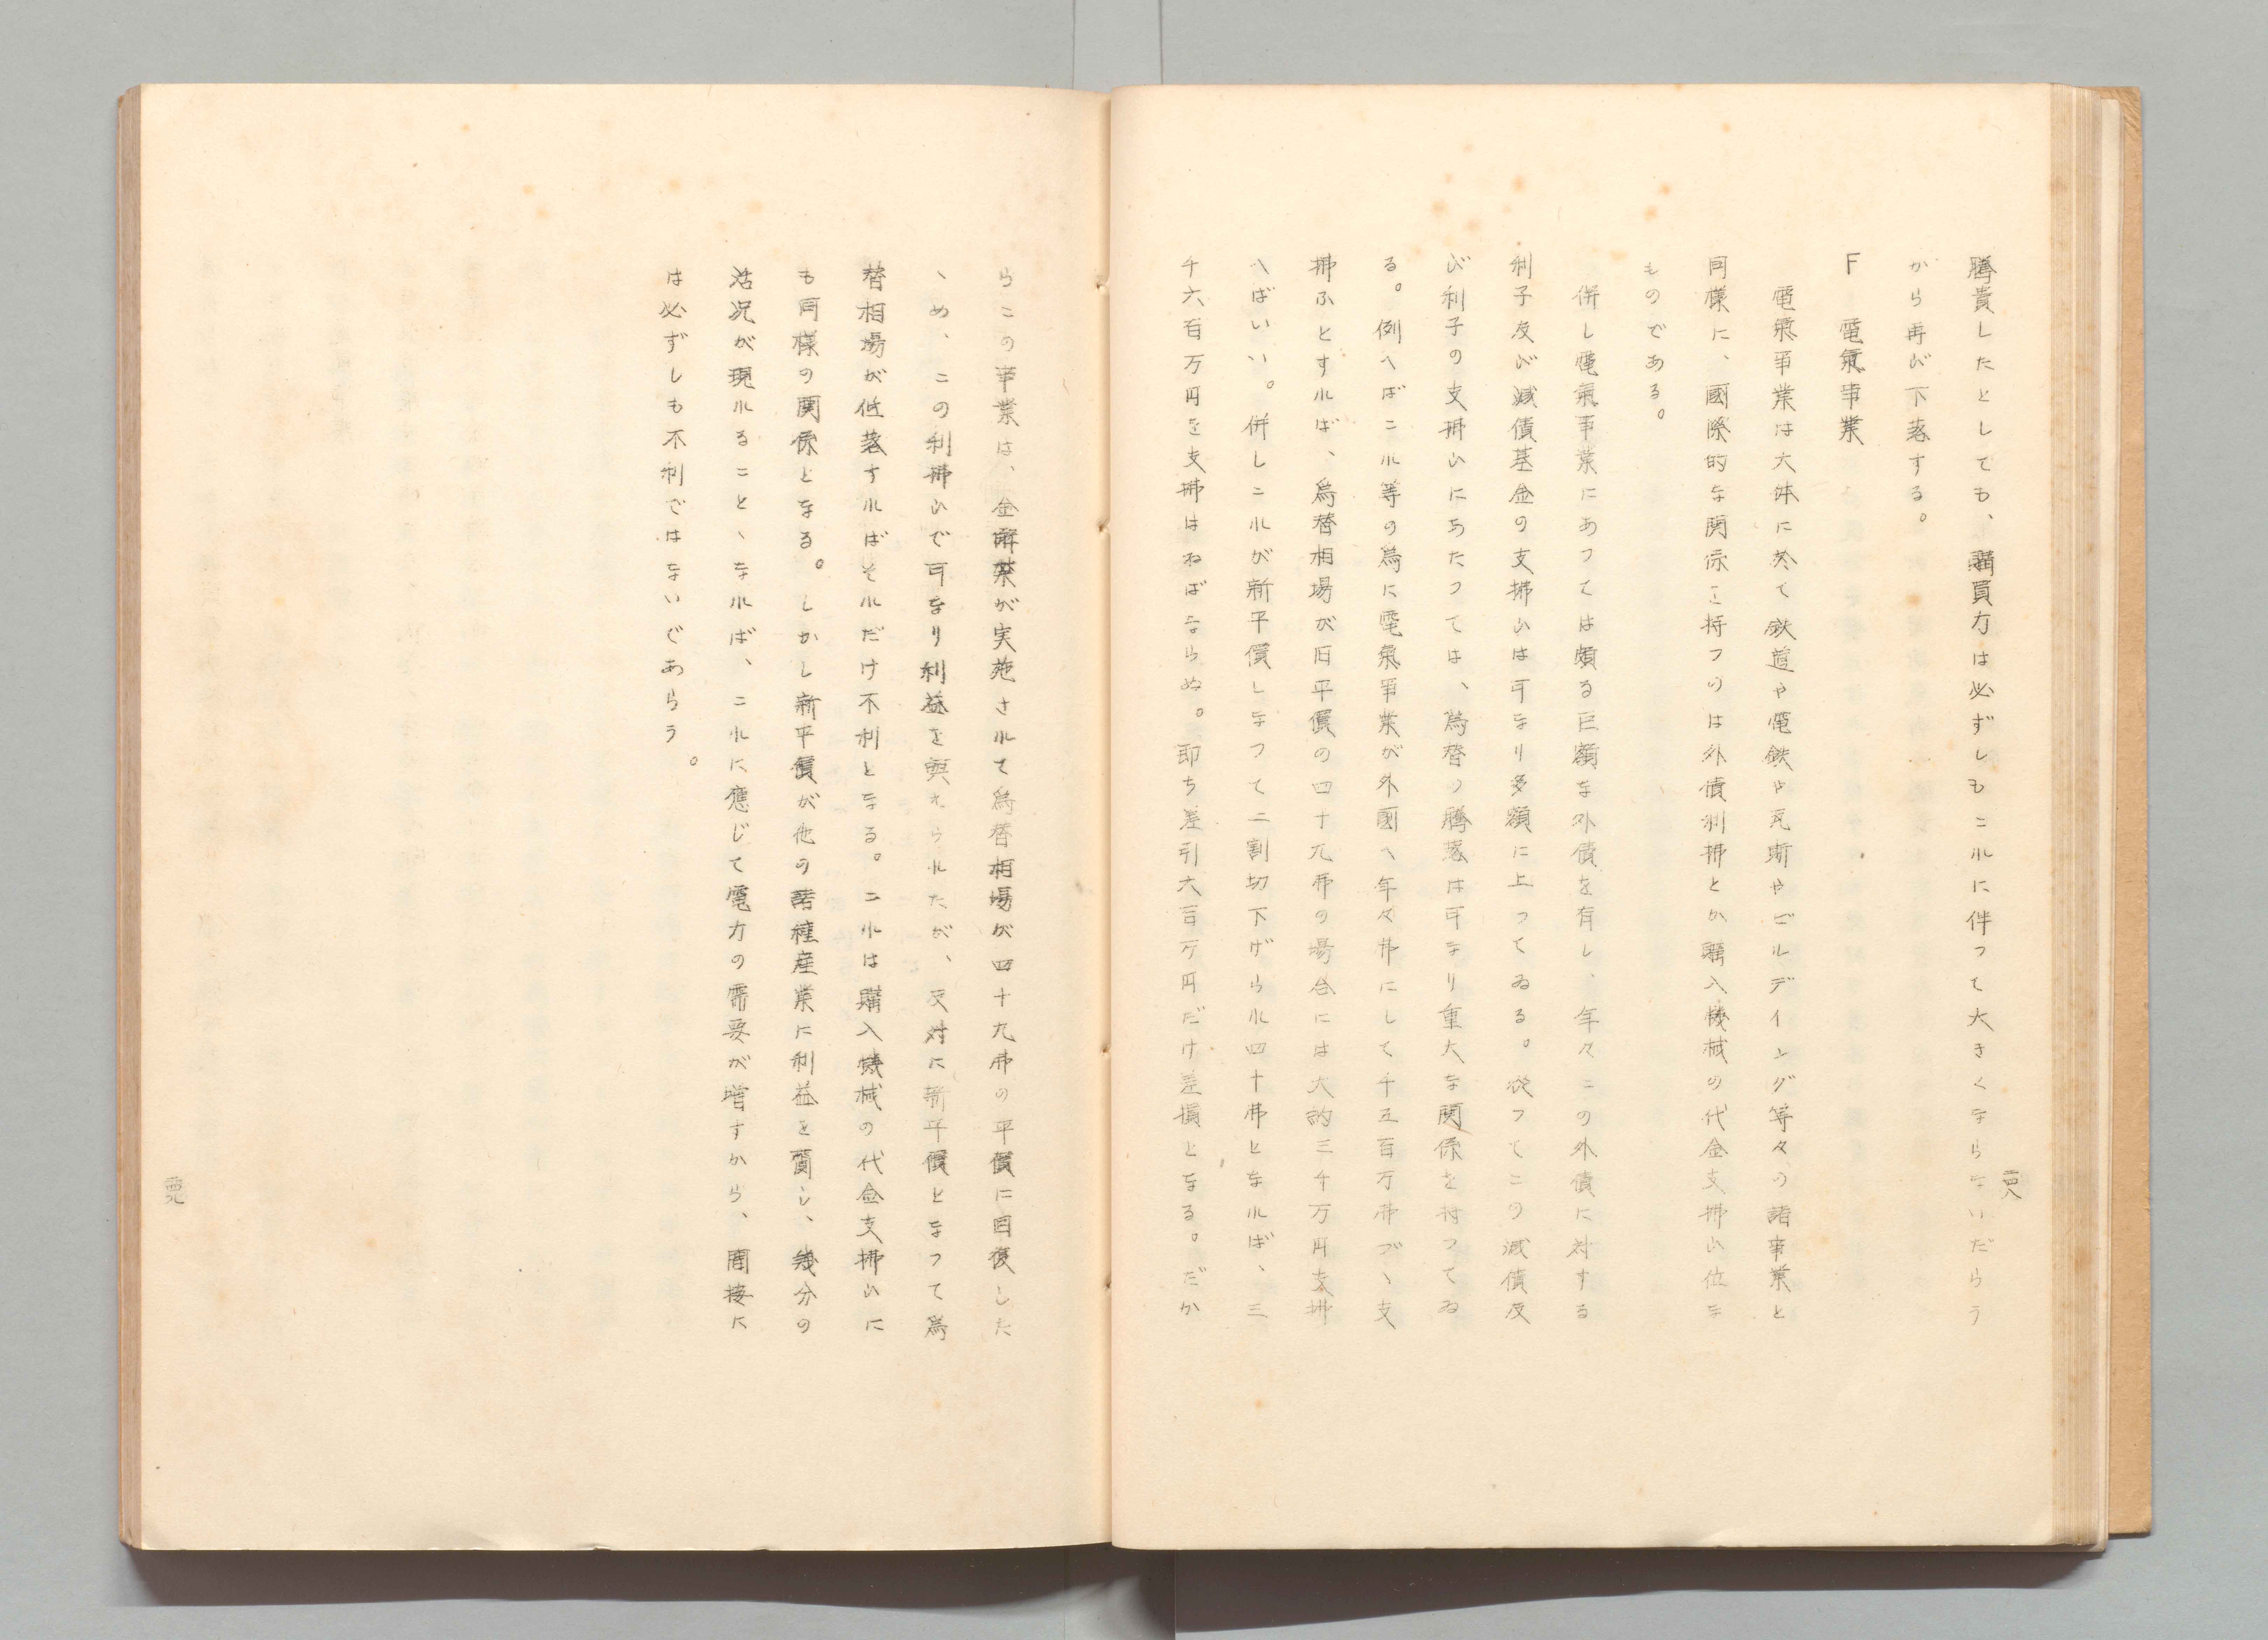 騰貴したとしても、購買力は必ずしもこれに伴つて大きくならないだらう
から再び下落する。
F 電氣事業
電氣事業は大体に於て鉄道や電鉄や瓦斯やビルディング等々の諸事業と
同様に、國際的な関係を持つのは外債利拂とか購入機械の代金支拂い位な
ものである。
併し電氣事業にあつては頗る巨額な外債を有し、年々この外債に対する
利子及び減債基金の支拂いは可なり多額に上つてゐる。從つてこの減債及
び利子の支拂いにあたつては、為替の騰落は可なり重大な関係を持つてゐ
る。例へばこれ等の為に電氣事業が外國へ年々弗にして千五百万弗づゝ支
拂ふとすれば、為替相場が旧平價の四十九弗の場合には大約三千万円支拂
へばいい。併しこれが新平價しなつて二割切下げられ四十弗となれば、三
千六百万円を支拂はねばならぬ。即ち差引六百万円だけ差損となる。だか
二四八
らこの事業は、金解禁が実施されて為替相場が四十九弗の平價に回復した
ゝめ、この利拂いで可なり利益を與へられたが、反対に新平價となつて為
替相場が低落すればそれだけ不利となる。これは購入機械の代金支拂いに
も同様の関係となる。しかし新平價が他の諸種産業に利益を齎し、幾分の
活況が現れることゝなれば、これに應じて電力の需要が増すから、間接に
は必ずしも不利ではないであらう。
二四九